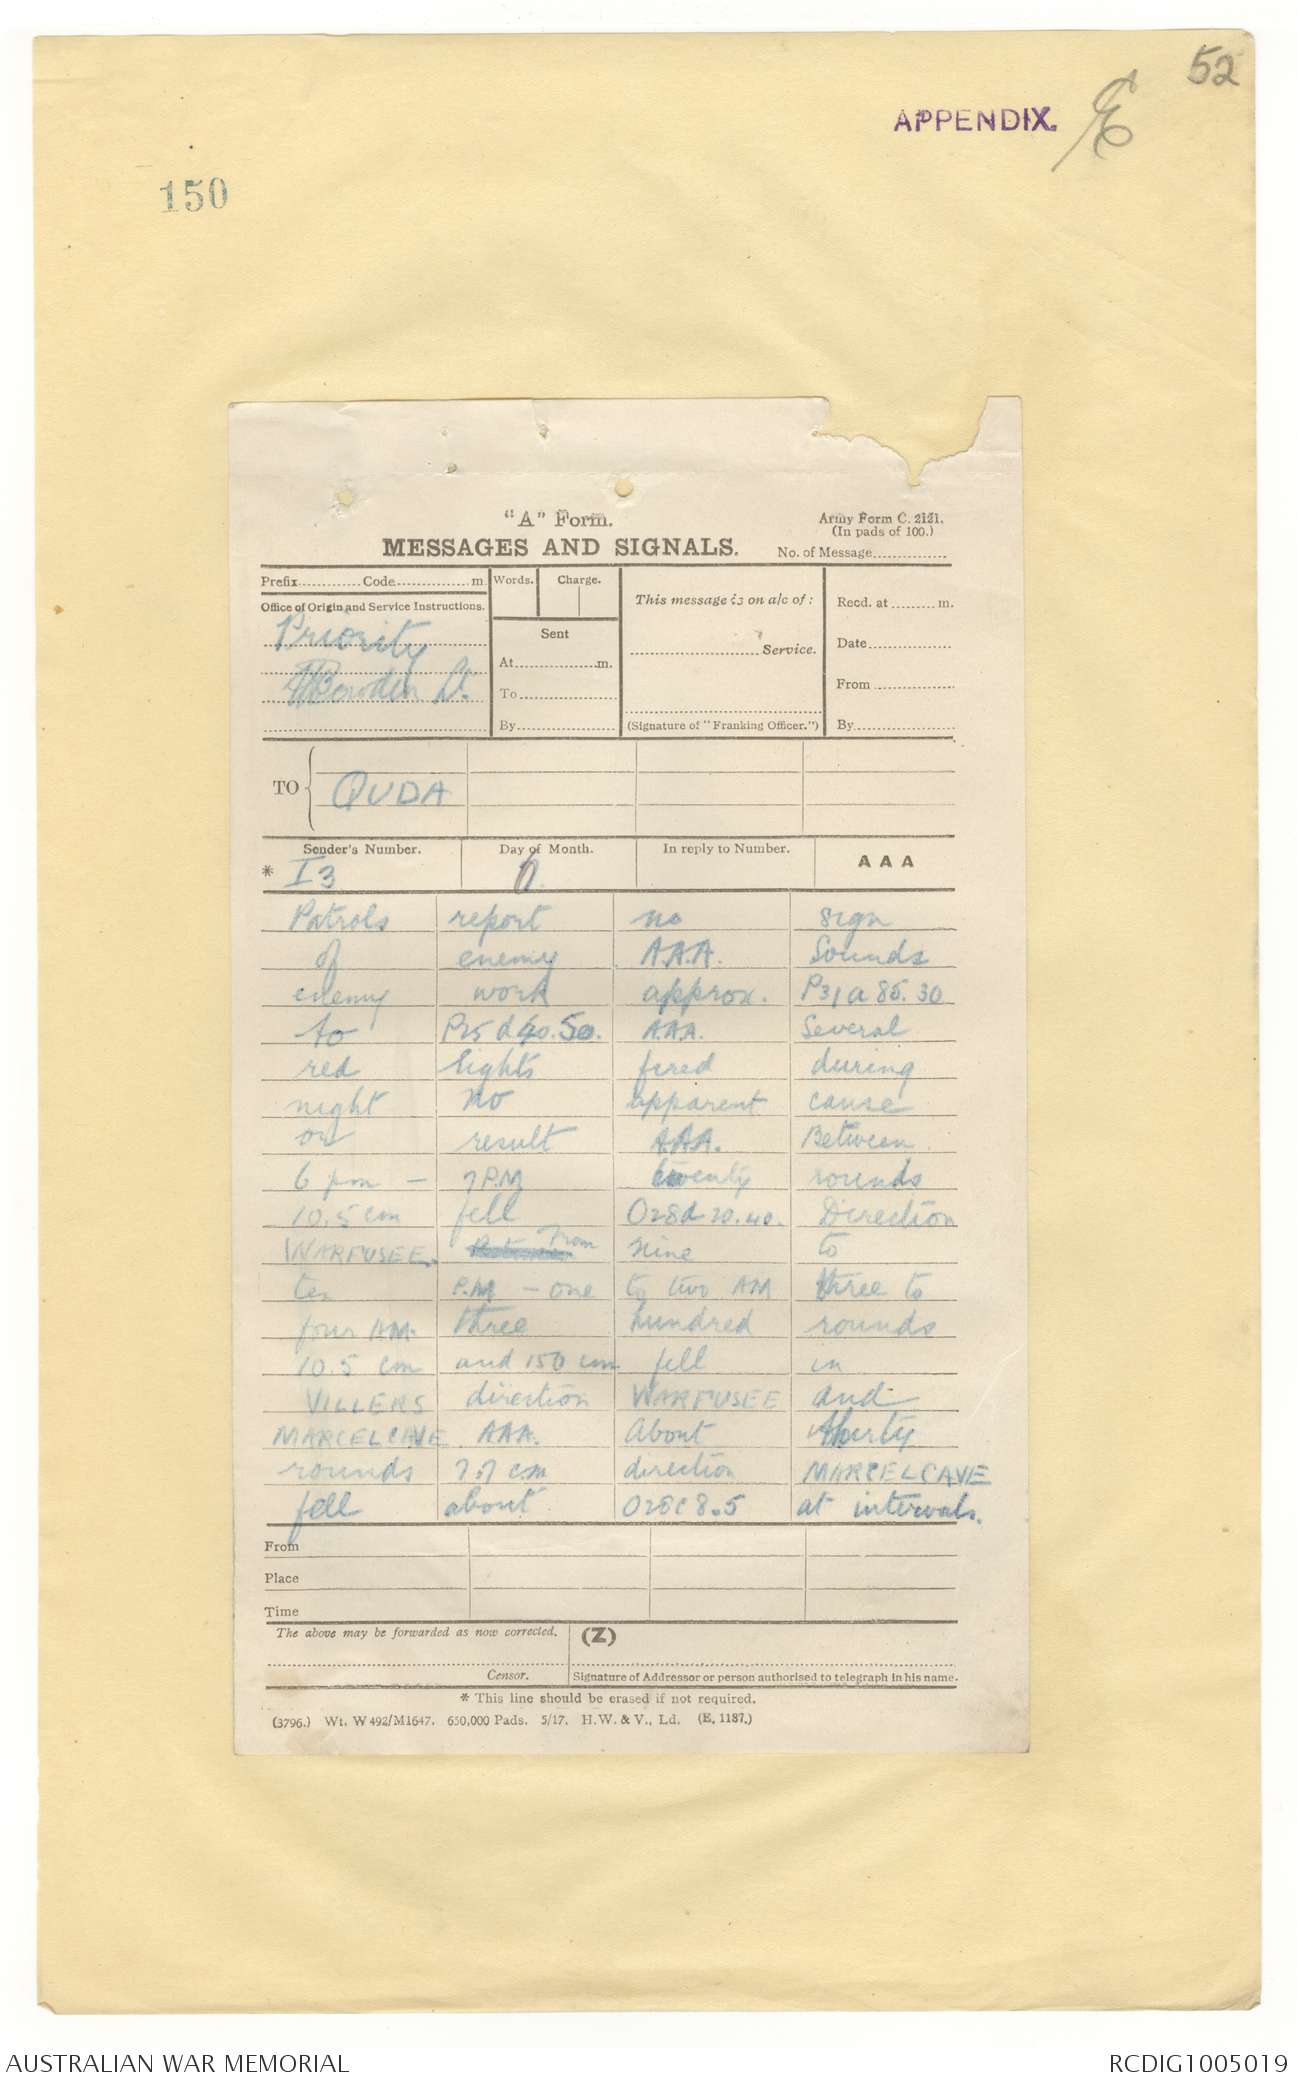 52
APPENDIX. E
150
"A" Form.
Army Form C. 2121.
(In pads of 100.)
MESSAGES AND SIGNALS.
No. of Message
Prefix Code m
Words. Charge.
This message is on a/c of :
Recd. at m.
Office of Origin and Service Instructions.
Priority
Bowden Lt.
Sent
At m.
To
By
Service.
(Signature of "Franking Officer.")
Date
From
By
TO QUDA
Sender's Number. Day of Month. In reply to Number. AAA
* I3
Patrols report no sign
of enemy A.A.A. Sounds
enemy work approx. P31a 85.30
to P25 d 40.50. A.A.A. Several
red lights fired during
night no apparent cause
or result A.A.A. Between
6 pm – 7 P.M twenty rounds
10.5 cm fell O28d 20.40. Direction
WARFUSEE. From nine to
ten P.M – one to two AM three to
four AM. three hundred rounds
10.5 cm and 150 cm fell in
VILLERS direction WARFUSEE and
MARCELCAVE AAA. About thirty
rounds 7.7 cm direction MARCELCAVE
fell about O28C 8.5 at intervals.
From
Place
Time
The above may be forwarded as now corrected. (Z)
Censor. Signature of Addressor or person authorised to telegraph in his name.
* This line should be erased if not required.
(3796.) Wt. W492/M1647. 650,000 Pads. 5/17. H.W. & V., Ld. (E. 1187.)
AUSTRALIAN WAR MEMORIAL RCDIG1005019